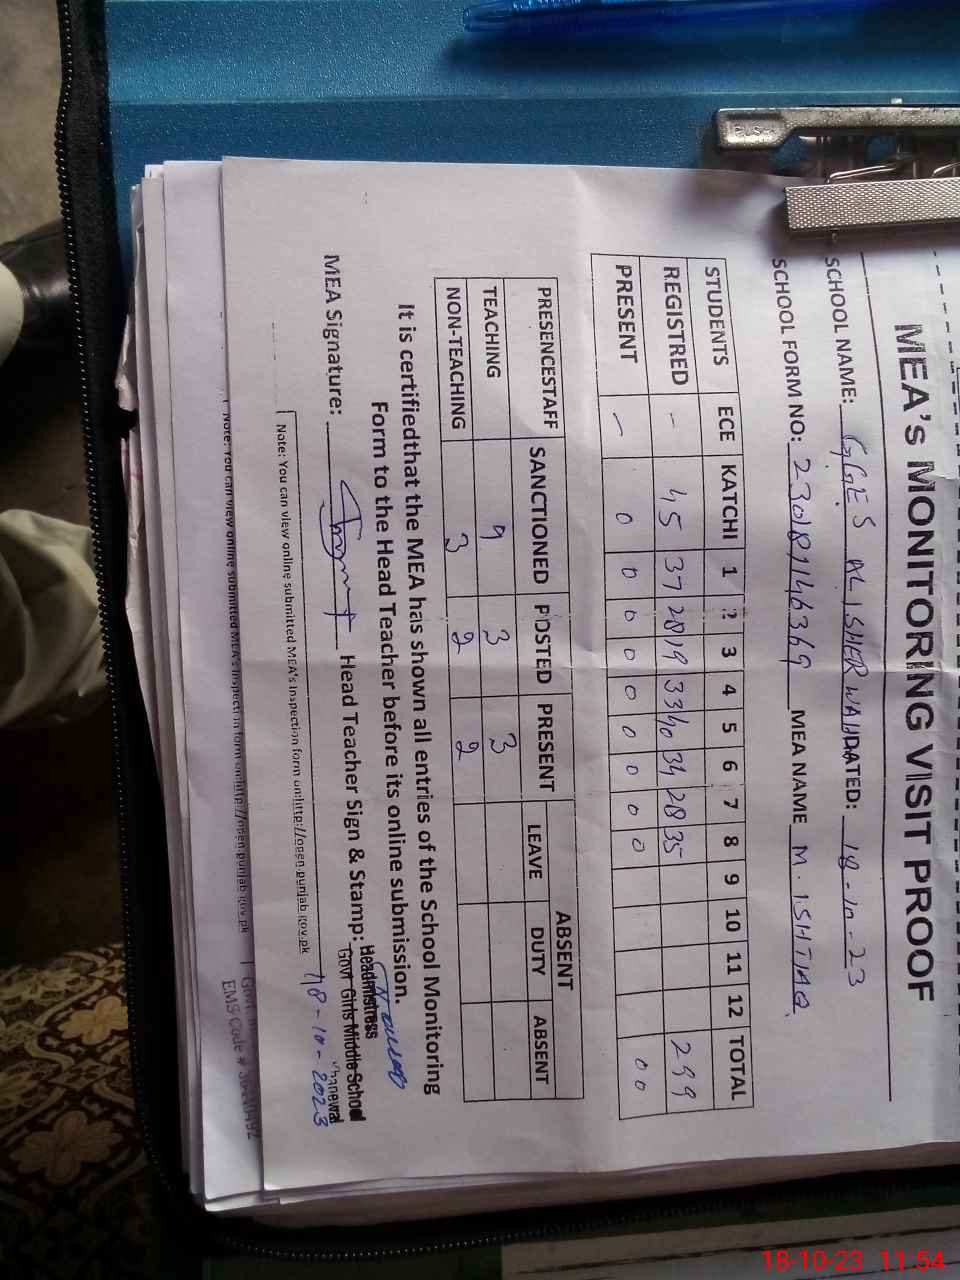 MEA's MONITORING VISIT PROOF
SCHOOL NAME: GGES ALISHER WAH DATED: 18-10-23
SCHOOL FORM NO: MEA NAME M. ISHTIAQ
STUDENTS ECE KATCHI 1 2 3 4 5 6 7 8 9 10 11 12 TOTAL
REGISTRED - 45 37 28 19 33 40 34 28 35 299
PRESENT - 0 0 0 0 0 0 0 0 0 00
ABSENT
PRESENCESTAFF SANCTIONED POSTED PRESENT LEAVE DUTY ABSENT
TEACHING 9 3 3
NON-TEACHING 3 2 2
It is certifiedthat the MEA has shown all entries of the School Monitoring
Form to the Head Teacher before its online submission.
MEA Signature: Head Teacher Sign & Stamp:
Headmistress
Govt Girls Middle School
Khanewal
18-10-2023
Note: You can view online submitted MEA's Inspection form on:http://open.punjab.gov.pk
Note: You can view online submitted MEA's Inspection form on:http://open.punjab.gov.pk
Govt.
EMS Code #
PUSH
18-10-23 11:54